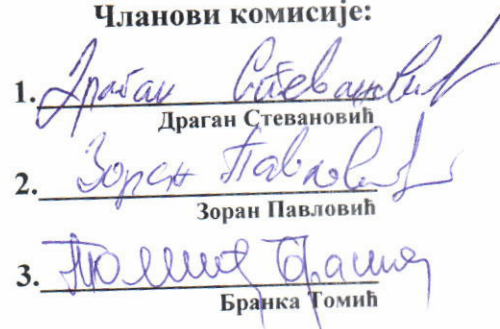 Чланови комисије:
1. Драган Стевановић
Драган Стевановић
2. Зоран Павловић
Зоран Павловић
3. Томић Бранка
Бранка Томић